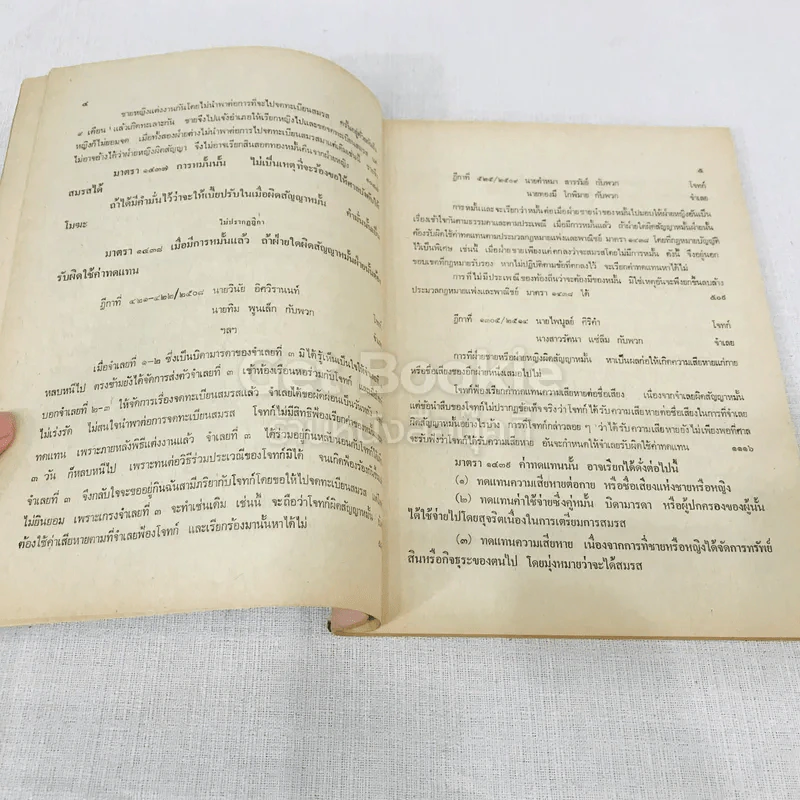 ๔
ชายหญิงแต่งงานกันโดยไม่นำพาต่อการที่จะไปจดทะเบียนสมรส
๙ เดือน แล้วเกิดทะเลาะกัน ชายจึงไปแจ้งอำเภอให้เรียกหญิงไป
หญิงก็ไม่ยอมจด เมื่อทั้งสองฝ่ายต่างไม่นำพาต่อการไปจดทะเบียนสมรส
ไม่อาจอ้างได้ว่าฝ่ายหญิงผิดสัญญา จึงไม่อาจเรียกสินสอดทองหมั้นคืนจากฝ่ายหญิง
มาตรา ๑๔๓๗ การหมั้นนั้น ไม่เป็นเหตุที่จะร้องขอให้
สมรสได้ ถ้าได้มีคำมั่นไว้ว่าจะให้เบี้ยปรับในเมื่อผิดสัญญาหมั้น
โมฆะ
ไม่ปรากฏฎีกา
มาตรา ๑๔๓๘ เมื่อมีการหมั้นแล้ว ถ้าฝ่ายใดผิดสัญญาหมั้น
รับผิดใช้ค่าทดแทน
ฎีกาที่ ๔๒๑-๔๒๒/๒๕๐๘ นายวินัย อิศวิรานนท์
นายทิม พูนเล็ก กับพวก
ฯลฯ
เมื่อจำเลยที่ ๑-๒ ซึ่งเป็นบิดามารดาของจำเลยที่ ๓ มิได้รู้เห็นเป็นใจให้
หลบหนีไป ตรงข้ามยังได้จัดการส่งตัวจำเลยที่ ๓ เข้าห้องเรือนหอร่วมกับโจทก์
บอกจำเลยที่ ๒-๓ ให้จัดการเรื่องจดทะเบียนสมรสแล้ว จำเลยได้ขอผัดผ่อน
ไม่เร่งรัด ไม่สนใจนำพาต่อการจดทะเบียนสมรส โจทก์ไม่มีสิทธิฟ้องเรียก
ทดแทน เพราะภายหลังพิธีแต่งงานแล้ว จำเลยที่ ๓ ได้ร่วมอยู่กินหลับนอนกับโจทก์
๓ วัน ก็หลบหนีไป เพราะทนต่อวิธีร่วมประเวณีของโจทก์มิได้ จนเกิดฟ้องร้อง
จำเลยที่ ๓ จึงกลับใจจะขออยู่กินฉันสามีภริยากับโจทก์โดยขอให้ไปจดทะเบียนสมรส
ไม่ยินยอม เพราะเกรงจำเลยที่ ๓ จะทำเช่นเดิม เช่นนี้ จะถือว่าโจทก์ผิดสัญญาหมั้น
ต้องใช้ค่าเสียหายตามที่จำเลยฟ้องโจทก์ และเรียกร้องมานั้นหาได้ไม่
๕
ฎีกาที่ ๕๒๕/๒๕๐๙ นายคำหมา สารรัมย์ กับพวก โจทก์
นายทองมี โกพิมาย กับพวก จำเลย
การหมั้นและจะเรียกว่าหมั้นต่อเมื่อฝ่ายชายนำของหมั้นไปมอบให้ฝ่ายหญิงอันเป็น
เรื่องเข้าใจกันตามธรรมดาและตามประเพณี เมื่อมีการหมั้นแล้ว ถ้าฝ่ายใดผิดสัญญาหมั้นฝ่ายนั้น
ต้องรับผิดใช้ค่าทดแทนตามประมวลกฎหมายแพ่งและพาณิชย์ มาตรา ๑๔๓๘ โดยที่กฎหมายบัญญัติ
ไว้เป็นพิเศษ เช่นนี้ เมื่อฝ่ายชายเพียงแต่ตกลงว่าจะสมรสโดยไม่มีการหมั้น ดังนี้ จึงอยู่นอก
ขอบเขตที่กฎหมายรับรอง หากไม่ปฏิบัติตามข้อที่ตกลงไว้ จะเรียกค่าทดแทนหาได้ไม่
การที่ไม่มีประเพณีของท้องถิ่นว่าจะต้องมีของหมั้น มิใช่เหตุอันจะพึงยกขึ้นลบล้าง
ประมวลกฎหมายแพ่งและพาณิชย์ มาตรา ๑๔๓๘ ได้
ฎีกาที่ ๑๓๐๕/๒๕๑๔ นายไพบูลย์ ศิริคำ โจทก์
นางสาวรัตนา แซ่ลิ้ม กับพวก จำเลย
การที่ฝ่ายชายหรือฝ่ายหญิงผิดสัญญาหมั้น หาเป็นผลก่อให้เกิดความเสียหายแก่กาย
หรือชื่อเสียงของอีกฝ่ายหนึ่งเสมอไปไม่
โจทก์ฟ้องเรียกค่าทดแทนความเสียหายต่อชื่อเสียง เนื่องจากจำเลยผิดสัญญาหมั้น
แต่ข้อนำสืบของโจทก์ไม่ปรากฏข้อเท็จจริงว่าโจทก์ได้รับความเสียหายต่อชื่อเสียงในการที่จำเลย
ผิดสัญญาหมั้นอย่างไรบ้าง การที่โจทก์กล่าวลอย ๆ ว่าได้รับความเสียหายยังไม่เพียงพอที่ศาล
จะรับฟังว่าโจทก์ได้รับความเสียหาย อันจะกำหนดให้จำเลยรับผิดใช้ค่าทดแทน ๑๑๑๖
มาตรา ๑๔๓๙ ค่าทดแทนนั้น อาจเรียกได้ดังต่อไปนี้
(๑) ทดแทนความเสียหายต่อกาย หรือชื่อเสียงแห่งชายหรือหญิง
(๒) ทดแทนค่าใช้จ่ายซึ่งคู่หมั้น บิดามารดา หรือผู้ปกครองของผู้นั้น
ได้ใช้จ่ายไปโดยสุจริตเนื่องในการเตรียมการสมรส
(๓) ทดแทนความเสียหาย เนื่องจากการที่ชายหรือหญิงได้จัดการทรัพย์
สินหรือกิจธุระของตนไป โดยมุ่งหมายว่าจะได้สมรส